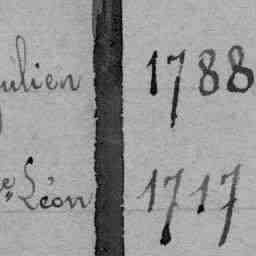 ulien 1788
e Léon 1717